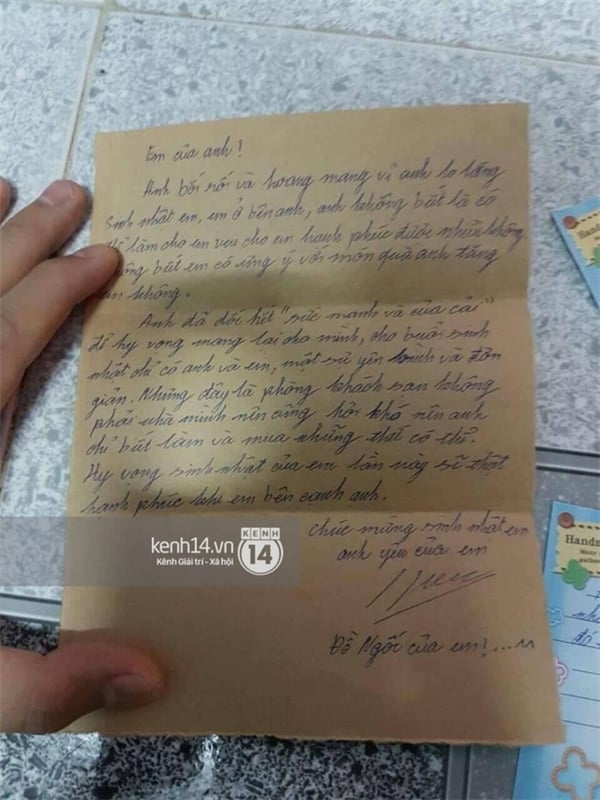 Em của anh!
Anh bối rối và hoang mang vì anh lo lắng
sinh nhật em, em ở bên anh, anh không biết là có
làm cho em vui cho em hạnh phúc được nhiều không
biết em có ứng ý với món quà anh tặng
không.
Anh đã dốc hết "sức mạnh và của cải"
để hy vọng mang lại cho mình, cho buổi sinh
nhật chỉ có anh và em, một sự yên bình và đơn
giản. Nhưng đây là phòng khách sạn không
phải nhà mình nên cũng hơi khó nên anh
chỉ biết làm và mua những thứ có thể.
Hy vọng sinh nhật của em lần này sẽ thật
hạnh phúc khi em bên cạnh anh.
chúc mừng sinh nhật em
anh yêu của em
Đồ Ngốc của em!...^^
kenh14.vn
Kênh Giải trí - Xã hội
KENH
14
Handm
Many
Handm
Many